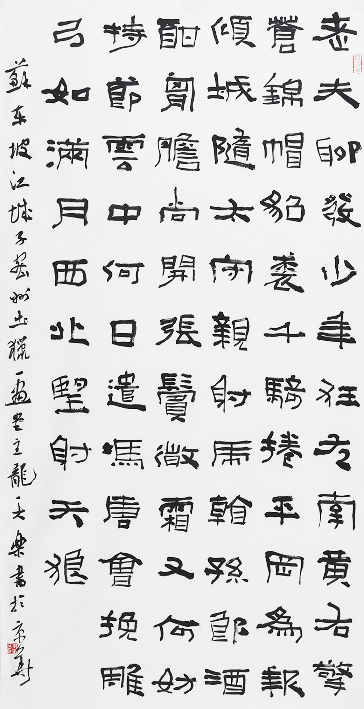 老夫聊發少年狂左牽黃右擎
蒼錦帽貂裘千騎捲平岡為報
傾城隨太守親射虎看孫郎酒
酣胸膽尚開張鬢微霜又何妨
持節雲中何日遣馮唐會挽雕
弓如滿月西北望射天狼
蘇東坡江城子密州出獵一龍樂書於京華